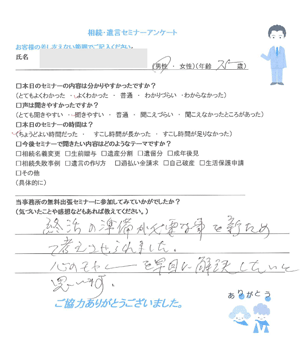 相続・遺言セミナーアンケート
お客様の差し支えない範囲でご記入ください。
氏名
(男性 ・ 女性)(年齢 75 歳)
□本日のセミナーの内容は分かりやすかったですか？
(・とてもよくわかった ・よくわかった ・ 普通 ・ わかりづらい ・わからなかった)
□声は聞きやすかったですか？
(・とても聞きやすい ・聞きやすい ・ 普通 ・ 聞こえづらい ・ 聞こえなかったところがあった)
□本日のセミナーの時間は？
(・ちょうどよい時間だった ・ すこし時間が長かった ・ すこし時間が足りなかった)
□今後セミナーで聞きたい内容はどのようなテーマですか？
□相続名義変更 □生前贈与 □遺産分割 □遺留分 □成年後見
□相続失敗事例 □遺言の作り方 □過払い金請求 □自己破産 □生活保護申請
□その他
(具体的に)
当事務所の無料出張セミナーに参加してみていかがでしたか？
(気づいたことや感想などもあれば教えてください。)
終活の準備が必要な事を新ため
て考えさせられました。
を早目に解決したいと
思います。
ご協力ありがとうございました。
ありがとう